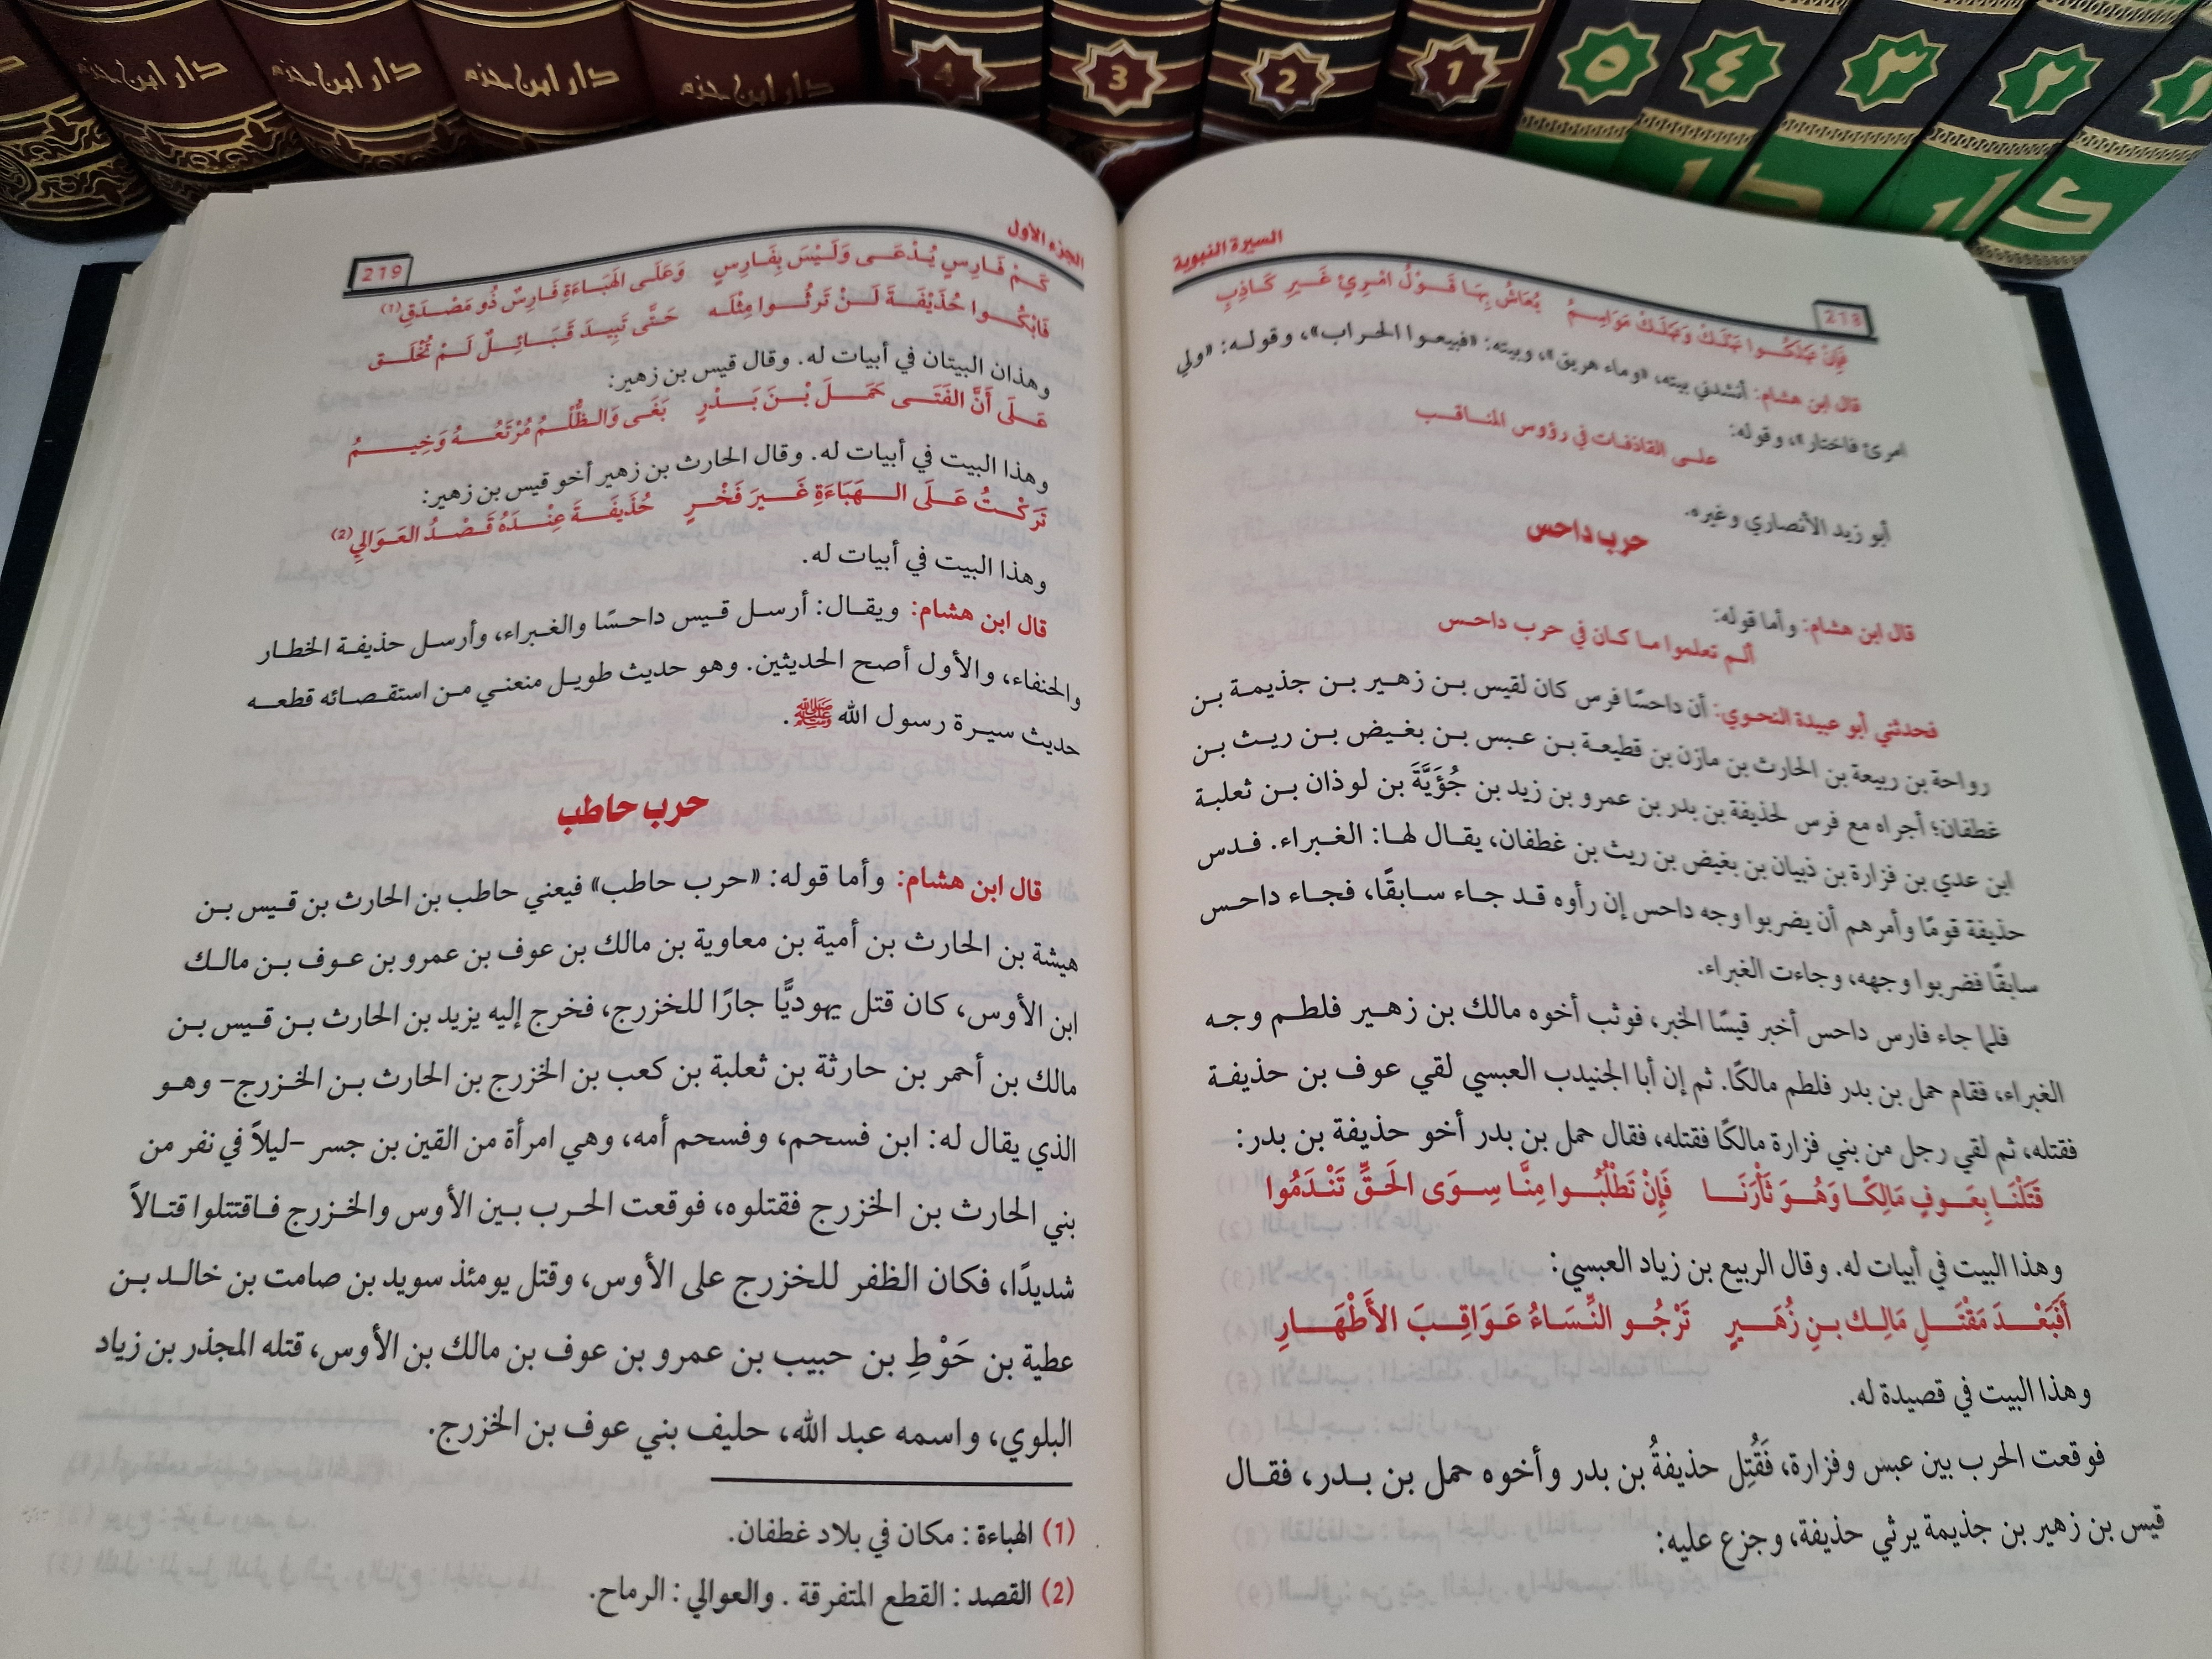 دار ابن حزم
دار ابن حزم
دار ابن حزم
دار ابن حزم
4
3
2
1
٥
٤
٣
٢
١
دار
دار
السيرة النبوية
218
فإن تهلكوا نهلك وتهلك مواسم يُعَاشُ بِهَا قَوْلُ امْرِئٍ غَيرِ كَاذِبِ
قال ابن هشام: أنشدني بيته، «وماء هريق»، وبيته: «فبيعوا الحراب»، وقوله: «ولي
امرئ فاختار»، وقوله:
على القاذفات في رؤوس المناقب
أبو زيد الأنصاري وغيره.
حرب داحس
قال ابن هشام: وأما قوله:
ألم تعلموا ما كان في حرب داحس
فحدثني أبو عبيدة النحوي: أن داحسًا فرس كان لقيس بن زهير بن جذيمة بن
رواحة بن ربيعة بن الحارث بن مازن بن قطيعة بن عبس بن بغيض بن ريث بن
غطفان؛ أجراه مع فرس لحذيفة بن بدر بن عمرو بن زيد بن جُؤَيَّةَ بن لوذان بن ثعلبة
ابن عدي بن فزارة بن ذبيان بن بغيض بن ريث بن غطفان، يقال لها: الغبراء. فدس
حذيفة قومًا وأمرهم أن يضربوا وجه داحس إن رأوه قد جاء سابقًا، فجاء داحس
سابقًا فضربوا وجهه، وجاءت الغبراء.
فلما جاء فارس داحس أخبر قيسًا الخبر، فوثب أخوه مالك بن زهير فلطم وجه
الغبراء، فقام حمل بن بدر فلطم مالكًا. ثم إن أبا الجنيدب العبسي لقي عوف بن حذيفة
فقتله، ثم لقي رجل من بني فزارة مالكًا فقتله، فقال حمل بن بدر أخو حذيفة بن بدر:
قَتَلْنَا بِعَوفٍ مَالِكًا وَهُوَ ثَأْرَنَا فَإِنْ تَطْلُبُوا مِنَّا سِوَى الحَقِّ تَنْدَمُوا
وهذا البيت في أبيات له. وقال الربيع بن زياد العبسي:
أَفَبَعْدَ مَقْتَلِ مَالِكِ بنِ زُهَيرٍ تَرْجُو النِّسَاءُ عَوَاقِبَ الأَطْهَارِ
وهذا البيت في قصيدة له.
فوقعت الحرب بين عبس وفزارة، فَقُتِل حذيفةُ بن بدر وأخوه حمل بن بدر، فقال
قيس بن زهير بن جذيمة يرثي حذيفة، وجزع عليه:
الجزء الأول
219
كَمْ فَارِسٍ يُدْعَى وَلَيْسَ بِفَارِسٍ وَعَلَى الهَبَاءَةِ فَارِسٌ ذُو مَصْدَقِ(1)
فَابْكُوا حُذَيْفَةَ لَنْ تَرثُوا مِثْلَه حَتَّى تَبِيدَ قَبَائِلٌ لَمْ تُخْلَقِ
وهذان البيتان في أبيات له. وقال قيس بن زهير:
عَلَى أَنَّ الفَتَى حَمَلَ بْنَ بَدْرٍ بَغَى وَالظُّلْمُ مُرْتَعُهُ وَخِيمُ
وهذا البيت في أبيات له. وقال الحارث بن زهير أخو قيس بن زهير:
تَرَكْتُ عَلَى الهَبَاءَةِ غَيرَ فَخْرٍ حُذَيفَةَ عِنْدَهُ قَصْدُ العَوَالِي(2)
وهذا البيت في أبيات له.
قال ابن هشام: ويقال: أرسل قيس داحسًا والغبراء، وأرسل حذيفة الخطار
والحنفاء، والأول أصح الحديثين. وهو حديث طويل منعني من استقصائه قطعه
حديث سيرة رسول الله ﷺ.
حرب حاطب
قال ابن هشام: وأما قوله: «حرب حاطب» فيعني حاطب بن الحارث بن قيس بن
هيشة بن الحارث بن أمية بن معاوية بن مالك بن عوف بن عمرو بن عوف بن مالك
ابن الأوس، كان قتل يهوديًّا جارًا للخزرج، فخرج إليه يزيد بن الحارث بن قيس بن
مالك بن أحمر بن حارثة بن ثعلبة بن كعب بن الخزرج بن الحارث بن الخزرج– وهو
الذي يقال له: ابن فسحم، وفسحم أمه، وهي امرأة من القين بن جسر –ليلاً في نفر من
بني الحارث بن الخزرج فقتلوه، فوقعت الحرب بين الأوس والخزرج فاقتتلوا قتالاً
شديدًا، فكان الظفر للخزرج على الأوس، وقتل يومئذ سويد بن صامت بن خالد بن
عطية بن حَوْطِ بن حبيب بن عمرو بن عوف بن مالك بن الأوس، قتله المجذر بن زياد
البلوي، واسمه عبد الله، حليف بني عوف بن الخزرج.
(1) الهباءة : مكان في بلاد غطفان.
(2) القصد : القطع المتفرقة . والعوالي : الرماح.